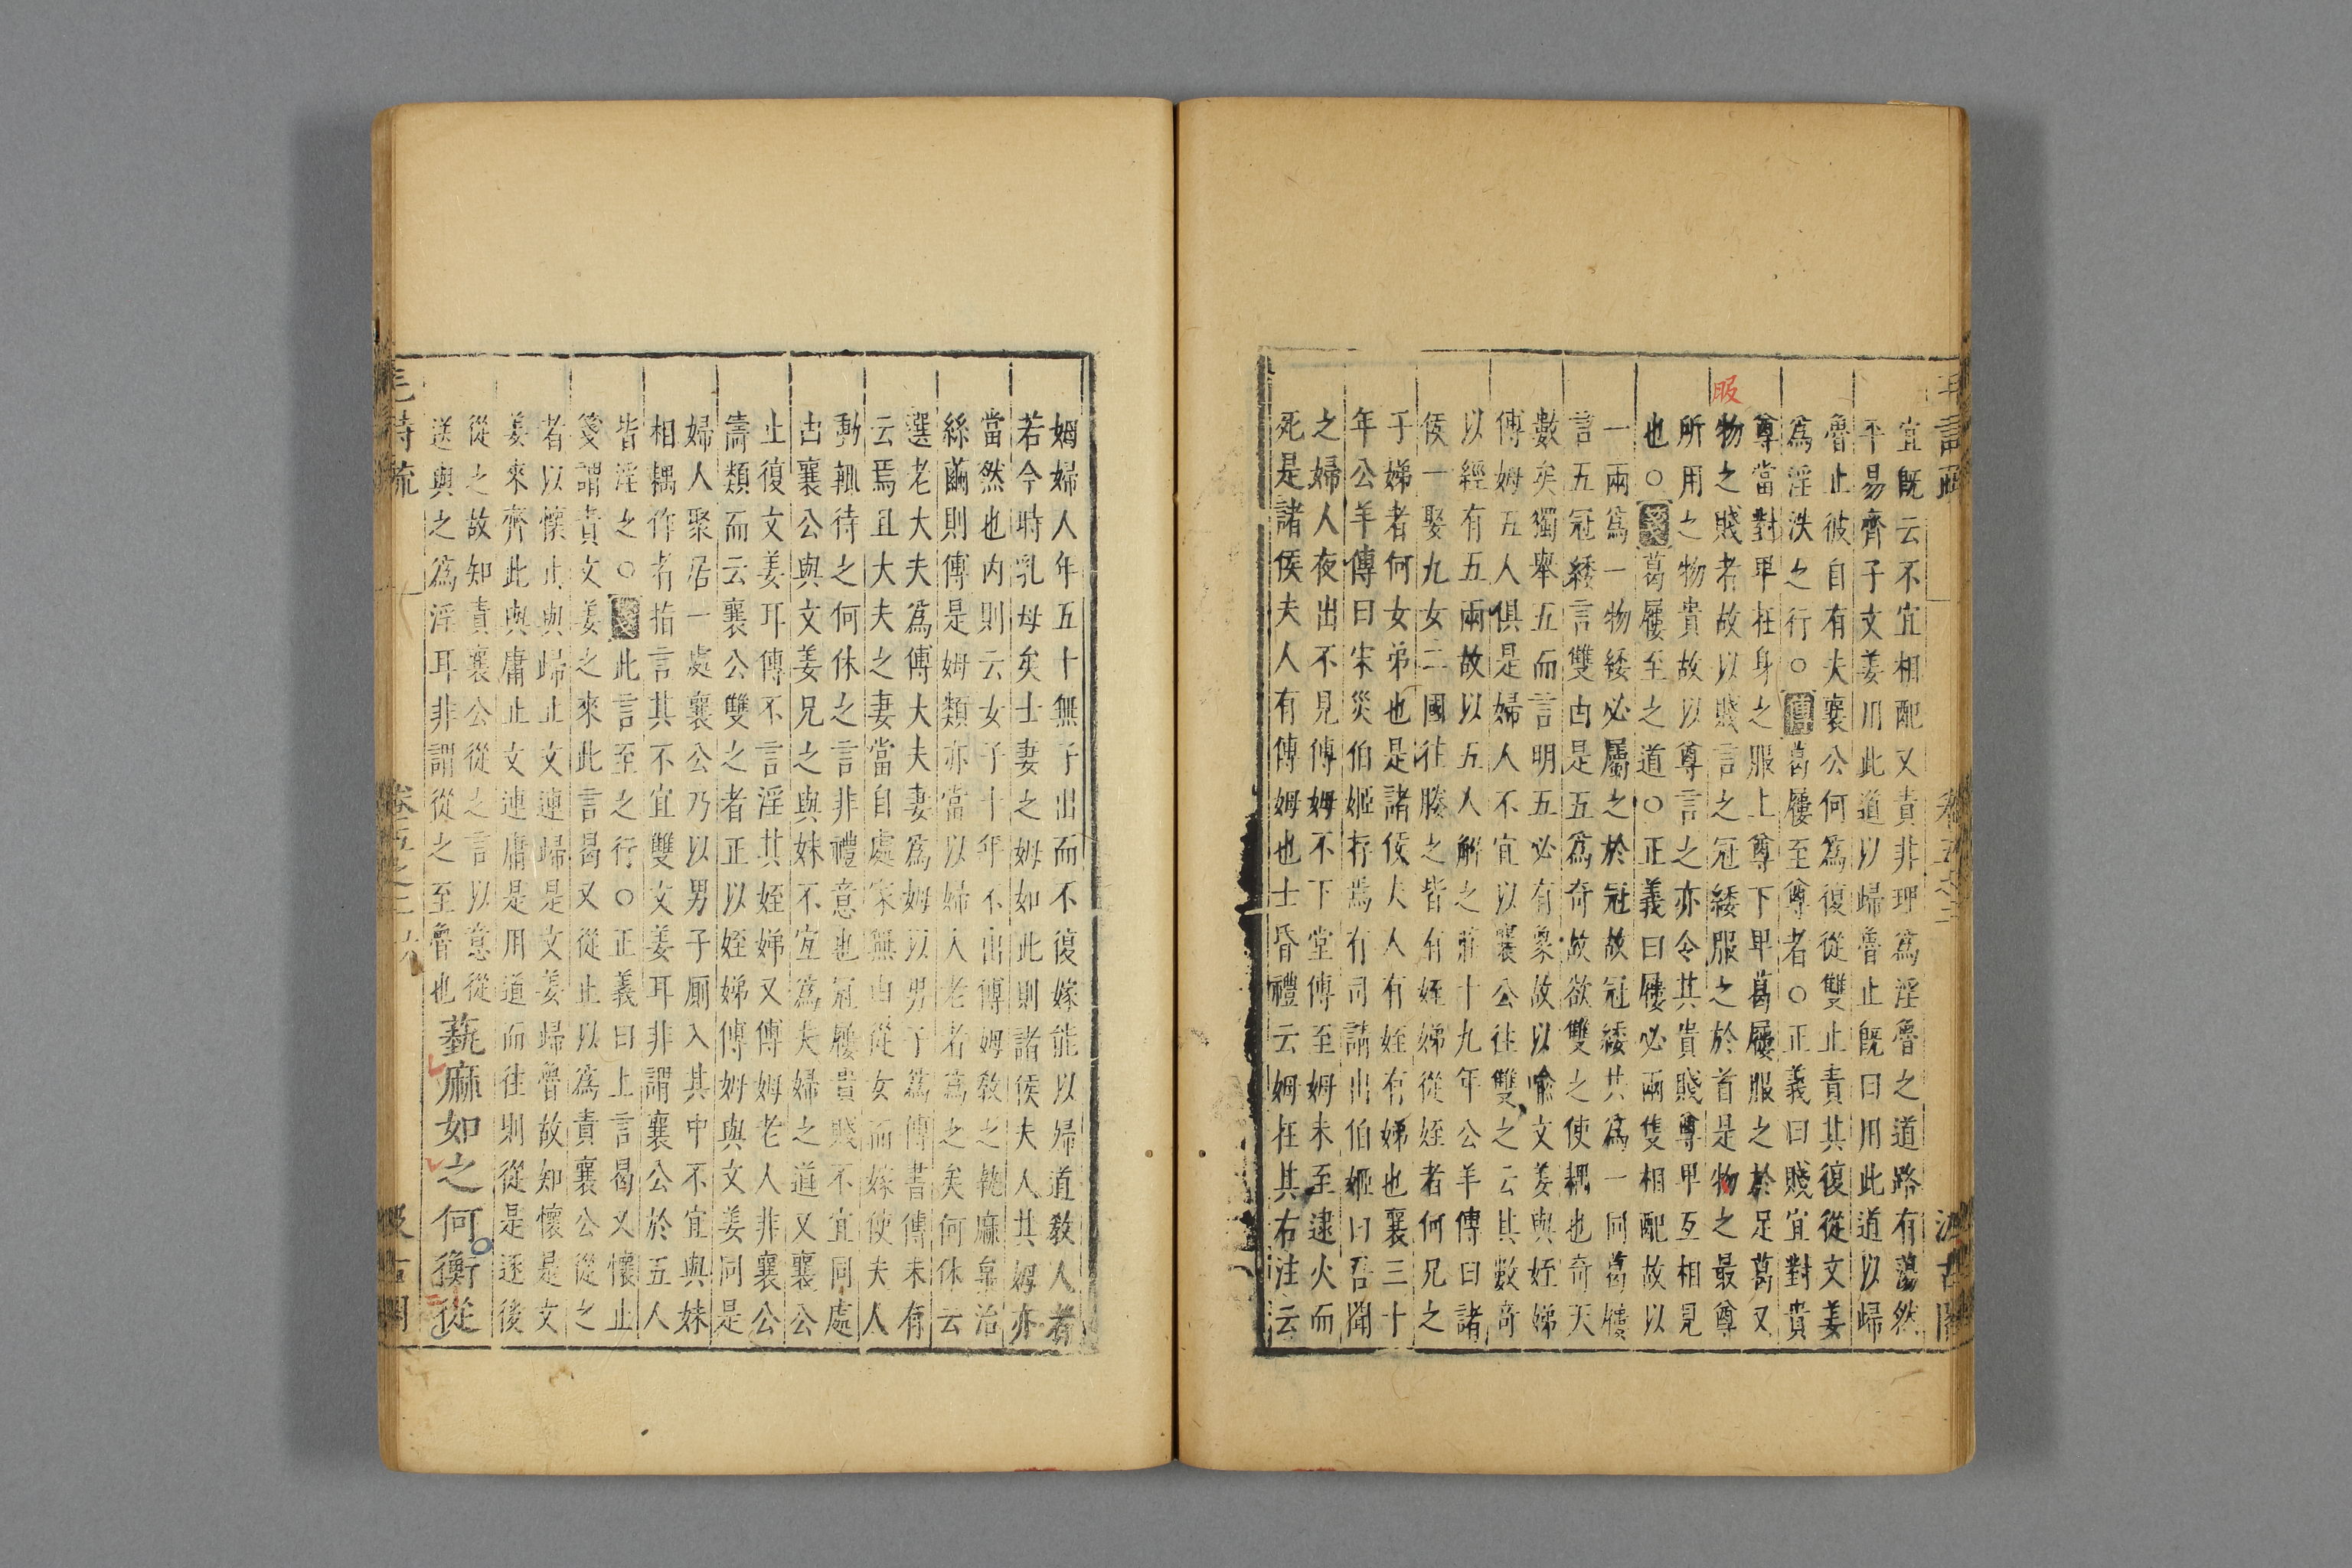 宜既云不宜相配又責非理爲淫魯之道路有蕩然
平易齊子文姜用此道以歸魯止既曰用此道以歸
魯止彼自有夫襄公何爲復從雙止責其復從文姜
爲淫泆之行○傳葛屨至尊者○正義曰賤宜對貴
尊當對卑在身之服上尊下卑葛屨服之於足葛又
物之賤者故以賤言之冠緌服之於首是物之最尊
服
所用之物貴故以尊言之亦令其貴賤尊卑互相見
也○箋葛屨至之道○正義曰屨必兩隻相配故以
一兩爲一物緌必屬之於冠故冠緌共爲一同葛屨
言五冠緌言雙由是五爲奇故欲雙之使耦也奇天
數矣獨舉五而言明五必有象故以喻文姜與姪娣
傅姆五人俱是婦人不宜以襄公往雙之云其數奇
以經有五兩故以五人解之莊十九年公羊傳曰諸
侯一娶九女二國往媵之皆有姪娣從姪者何兄之
子娣者何女弟也是諸侯夫人有姪有娣也襄三十
年公羊傳曰宋災伯姬存焉有司請出伯姬曰吾聞
之婦人夜出不見傅姆不下堂傅至姆未至逮火而
死是諸侯夫人有傅姆也士昏禮云姆在其右注云
毛詩疏 卷五之二 汲古閣
姆婦人年五十無子出而不復嫁能以婦道敎人者
若今時乳母矣士妻之姆如此則諸侯夫人其姆亦
當然也內則云女子十年不出傅姆敎之執麻枲治
絲繭則傅是姆類亦當以婦人老者爲之矣何休云
選老大夫爲傅大夫妻爲姆以男子爲傅書傳未有
云焉且大夫之妻當自處家無由從女而嫁使夫人
動輒待之何休之言非禮意也冠屨貴賤不宜同處
由襄公與文姜兄之與妹不宜爲夫婦之道又襄公
止復文姜耳傳不言淫其姪娣又傅姆老人非襄公
儔類而云襄公雙之者正以姪娣傅姆與文姜同是
婦人聚居一處襄公乃以男子廁入其中不宜與妹
相耦作者指言其不宜雙文姜耳非謂襄公於五人
皆淫之○箋此言至之行○正義曰上言曷又懷止
箋謂責文姜之來此言曷又從止以爲責襄公從之
者以懷止與歸止文連歸是文姜歸魯故知懷是文
姜來齊此與庸止文連庸是用道而往則從是逐後
從之故知責襄公從之言以意從
送與之爲淫耳非謂從之至魯也 蓺麻如之何衡從
毛詩疏 卷五之二 八 汲古閣